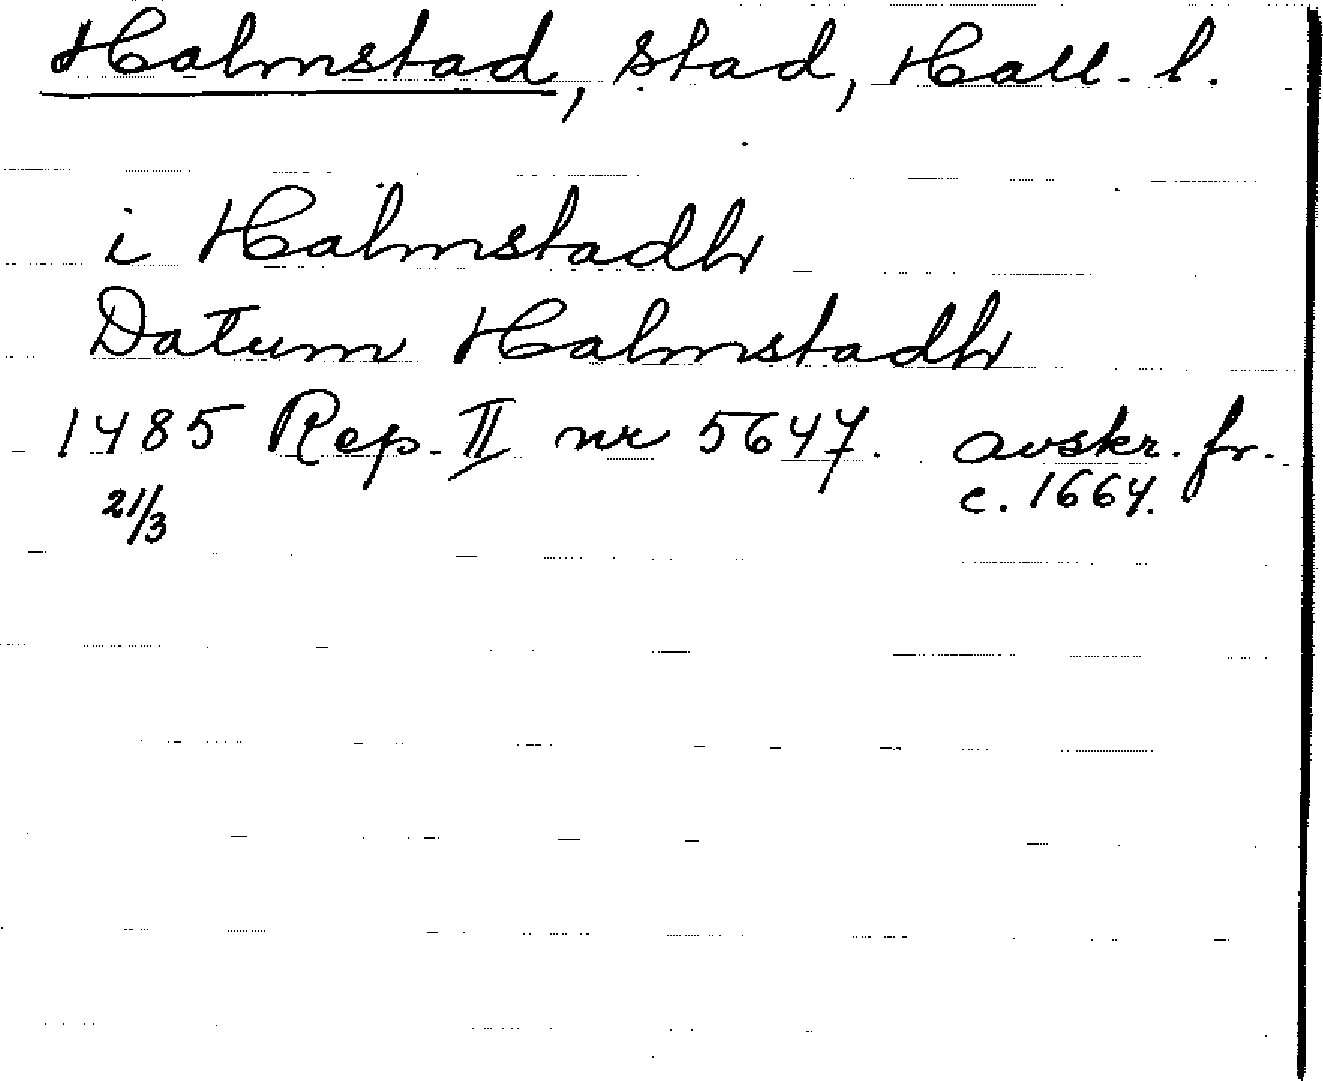 Halmstad, stad, Hall. l.
i Halmstadh
Datum Halmstadh
1485 Rep. II nr 5647. avskr. fr.
21/3 c. 1664.